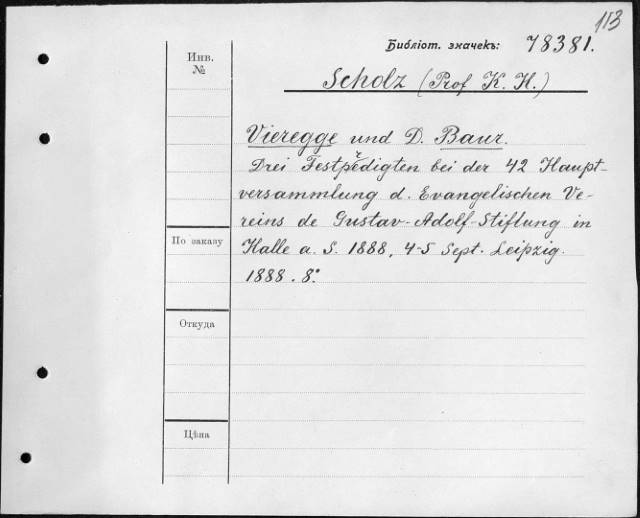 113
Библіот. значекъ: 78381.
Инв.
№
Scholz (Prof K. H.)
Vieregge und D. Baur.
Drei Festpredigten bei der 42 Haupt-
versammlung d. Evangelischen Ve-
reins de Gustav-Adolf-Stiftung in
Halle a. S. 1888, 4-5 Sept. Leipzig.
1888. 8°.
По заказу
Откуда
Цѣна